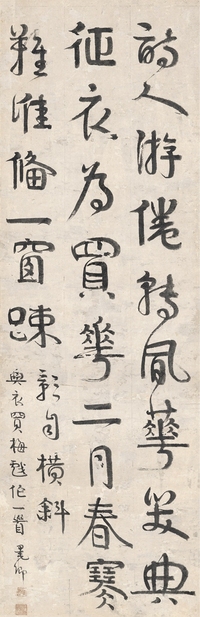 詩人游倦轉風華笑典
征衣為買華二月春寒
難准備一窗疎
影自橫斜
典衣買梅戲作一首